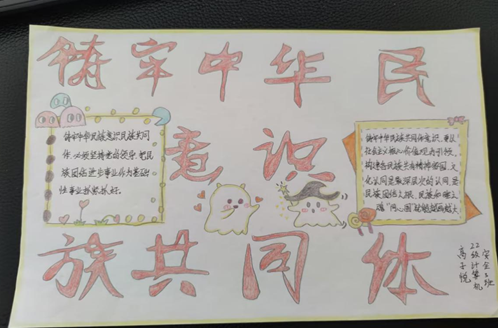 铸牢中华民
族共同体
意识
铸牢中华民族共同体意识,
民族共同
体,必须坚持党的领导,把民
族团结进步事业作为基础
性事业抓紧抓好。
铸牢中华民族共同体意识,要以
社会主义核心价值观为引领,
构建各民族共有精神家园。文
化认同是最深层次的认同,是
民族团结之根、民族和睦之
魂。
安全2班
22级计算机
高子悦